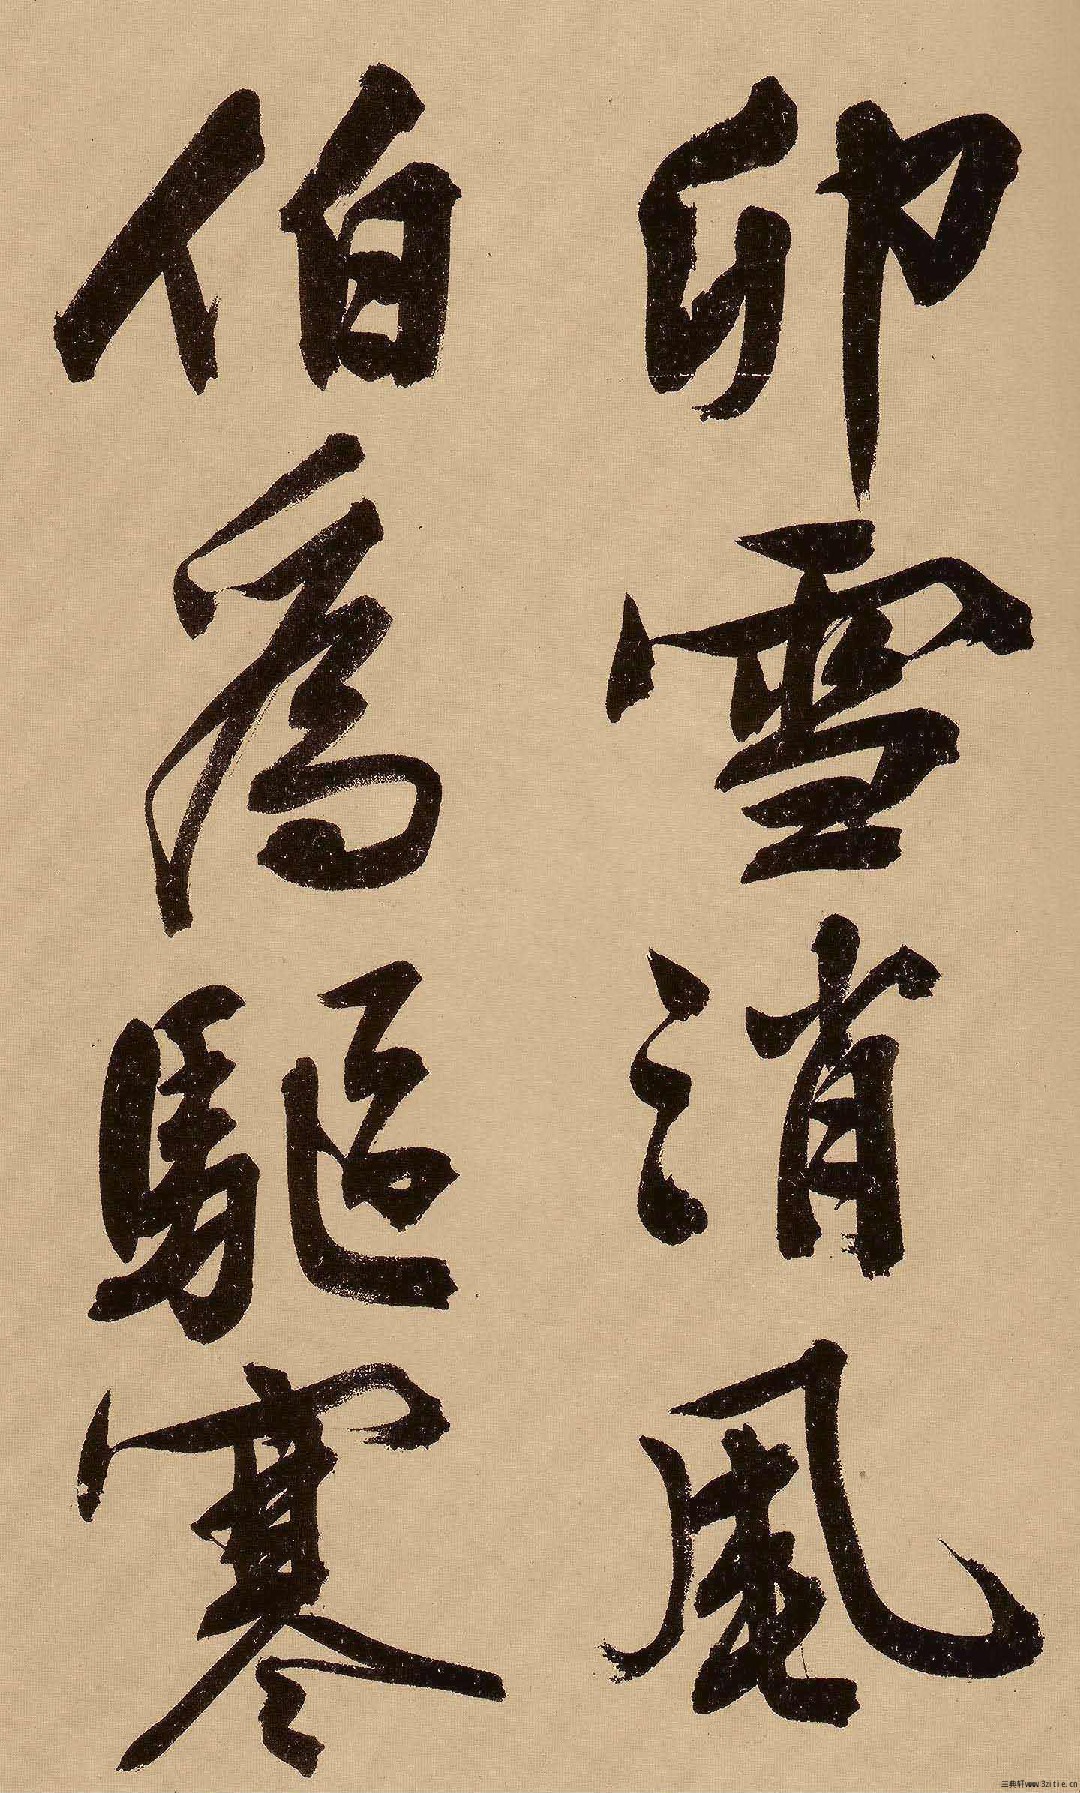 卯雪消風
伯為驅寒
三典轩www.3zitie.cn